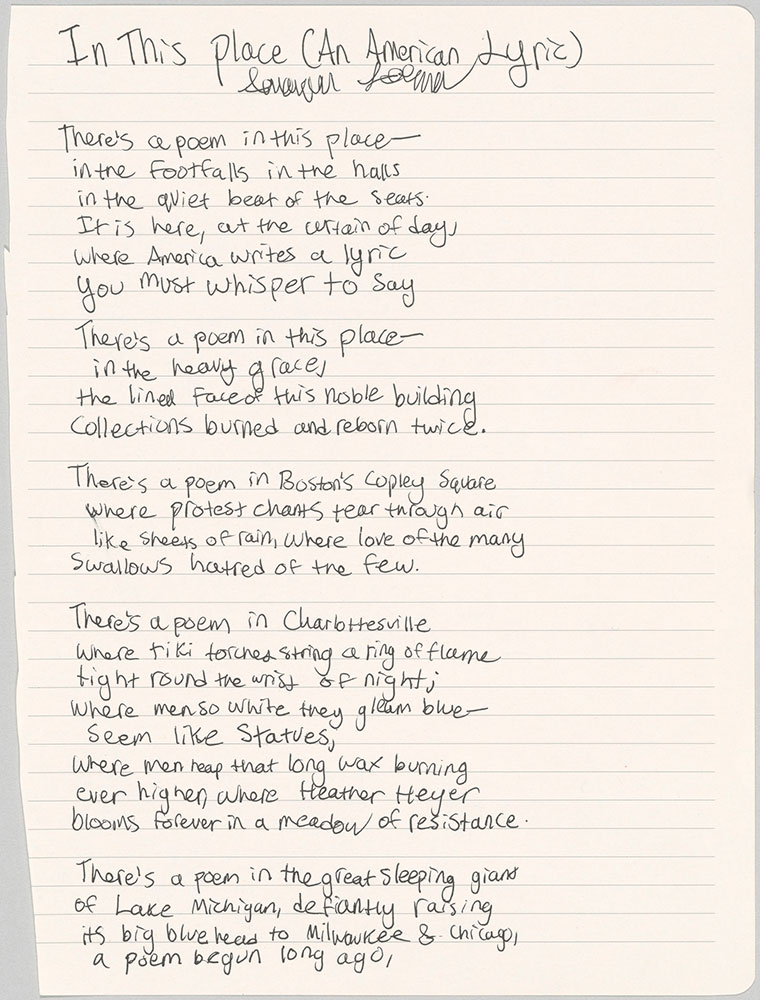 In This place (An American Lyric)
There's a poem in this place—
in the footfalls in the halls
in the quiet beat of the seats.
It is here, at the curtain of day,
where America writes a lyric
you must whisper to say
There's a poem in this place—
in the heavy grace,
the lined face of this noble building
Collections burned and reborn twice.
There's a poem in Boston's Copley Square
where protest chants tear through air
like sheets of rain, where love of the many
swallows hatred of the few.
There's a poem in Charlottesville
where tiki torches string a ring of flame
tight round the wrist of night;
where men so white they gleam blue—
seem like statues,
where men heap that long wax burning
ever higher, where Heather Heyer
blooms forever in a meadow of resistance.
There's a poem in the great sleeping giant
of Lake Michigan, defiantly raising
its big blue head to Milwaukee & Chicago,
a poem begun long ago,